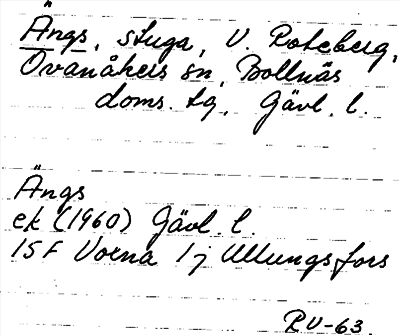 Ängs, stuga, V. Roteberg,
Ovanåkers sn, Bollnäs
doms. tg, Gävl. l.
Ängs
ek (1960) Gävl. l.
15F Voxna 1j Ullungsfors
RV-63.